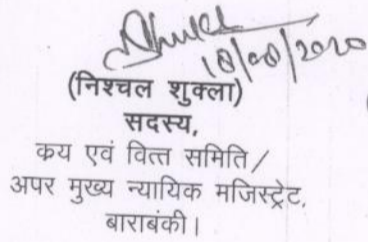 18/08/2020
(निश्चल शुक्ला)
सदस्य,
कय एवं वित्त समिति /
अपर मुख्य न्यायिक मजिस्ट्रेट,
बाराबंकी।